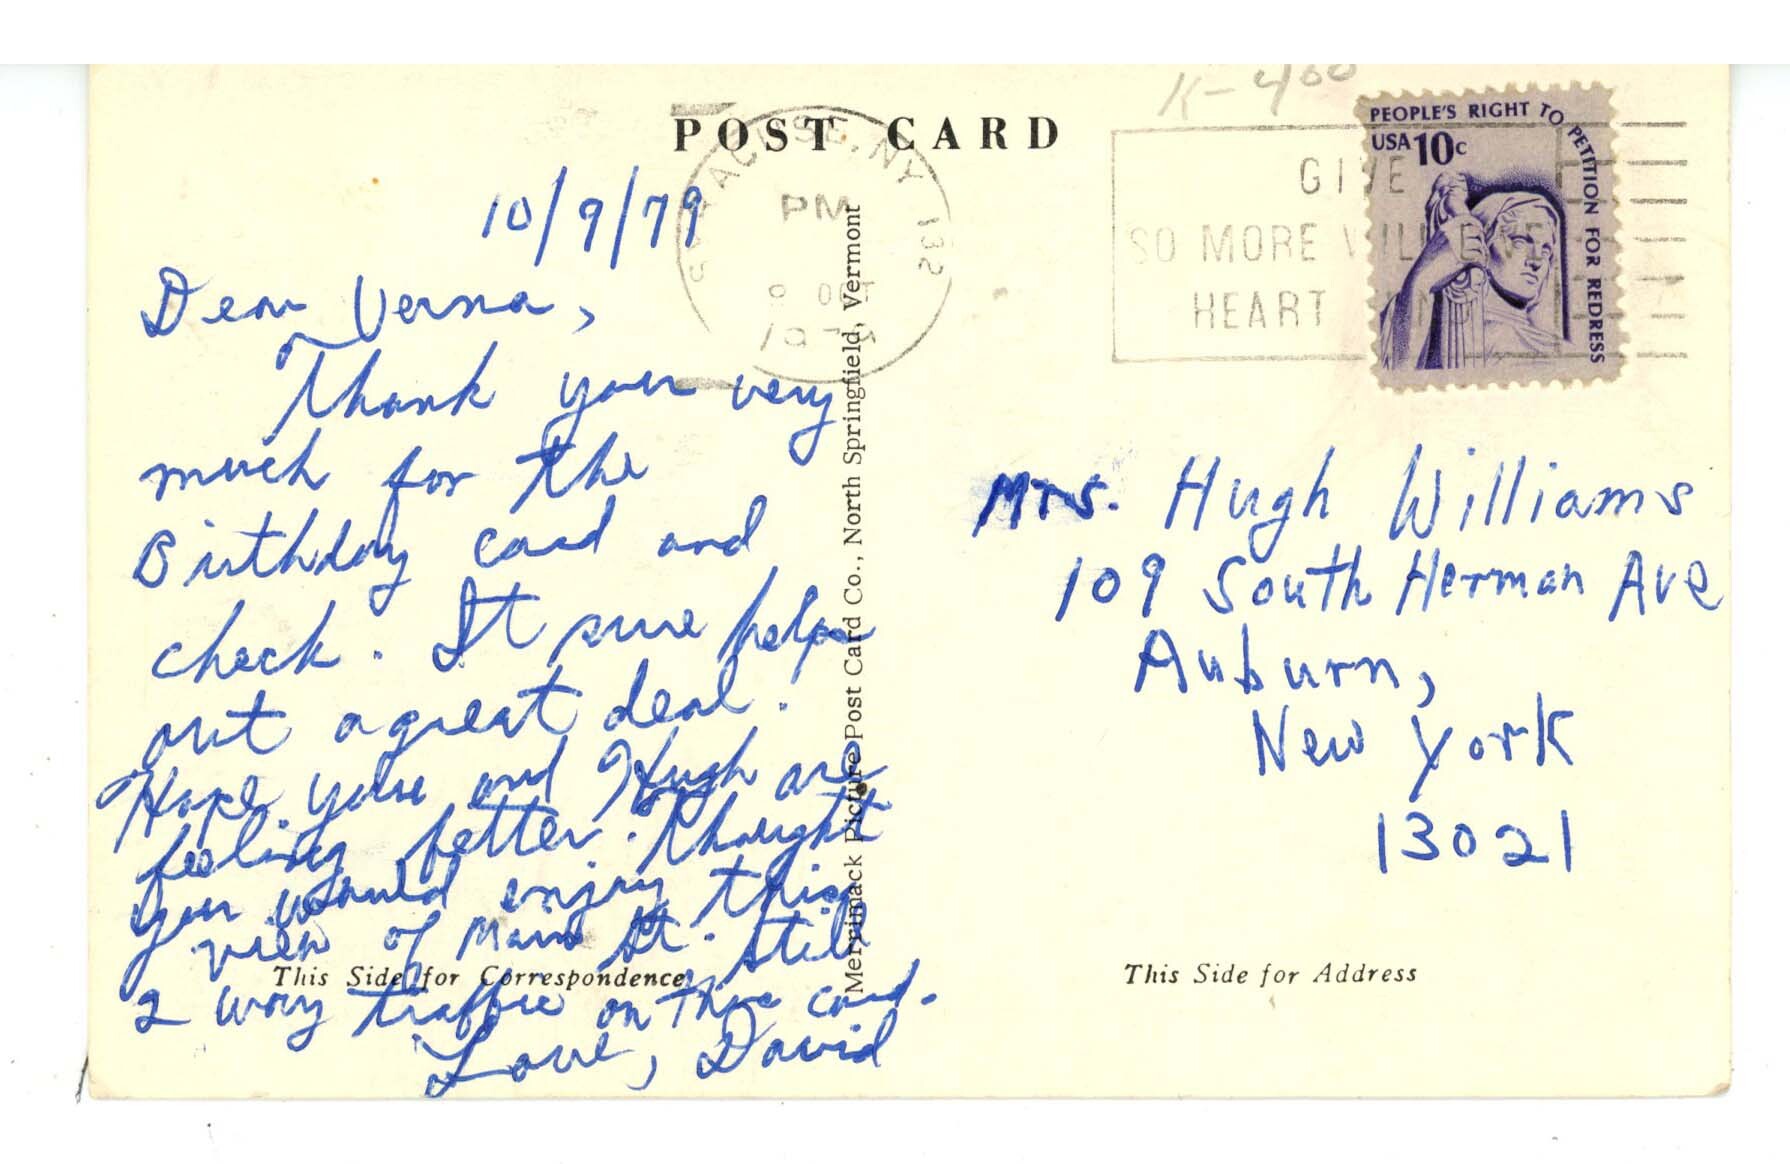 K-400
POST CARD
SYRACUSE, NY 132
PM
9 OCT
197
GIVE
SO MORE WILL LIVE
HEART
PEOPLE'S RIGHT TO PETITION FOR REDRESS
USA 10c
10/9/79
Dear Verna,
Thank you very
much for the
Birthday card and
check. It sure helps
out a great deal!
Hope you and Hugh are
feeling better. Thought
you would enjoy this
view of Main St. Still
2 way traffic on the card.
Love, David
This Side for Correspondence
Merrimack Picture Post Card Co., North Springfield, Vermont
Mrs. Hugh Williams
109 South Herman Ave
Auburn,
New York
13021
This Side for Address